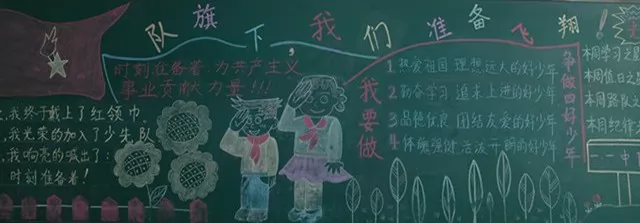 队旗下,我们准备飞翔
时刻准备着:为共产主义
事业贡献力量!!!
我终于戴上了红领巾,
我光荣的加入了少先队
我响亮的喊出了:
时刻准备着!
我要做
1.热爱祖国 理想远大的好少年
2.勤奋学习 追求上进的好少年
3.品德优良 团结友爱的好少年
4.体魄强健 活泼开朗的好少年
争做四好少年
本周学习之星
本周值日之
本周路队
本周纪律
一一中